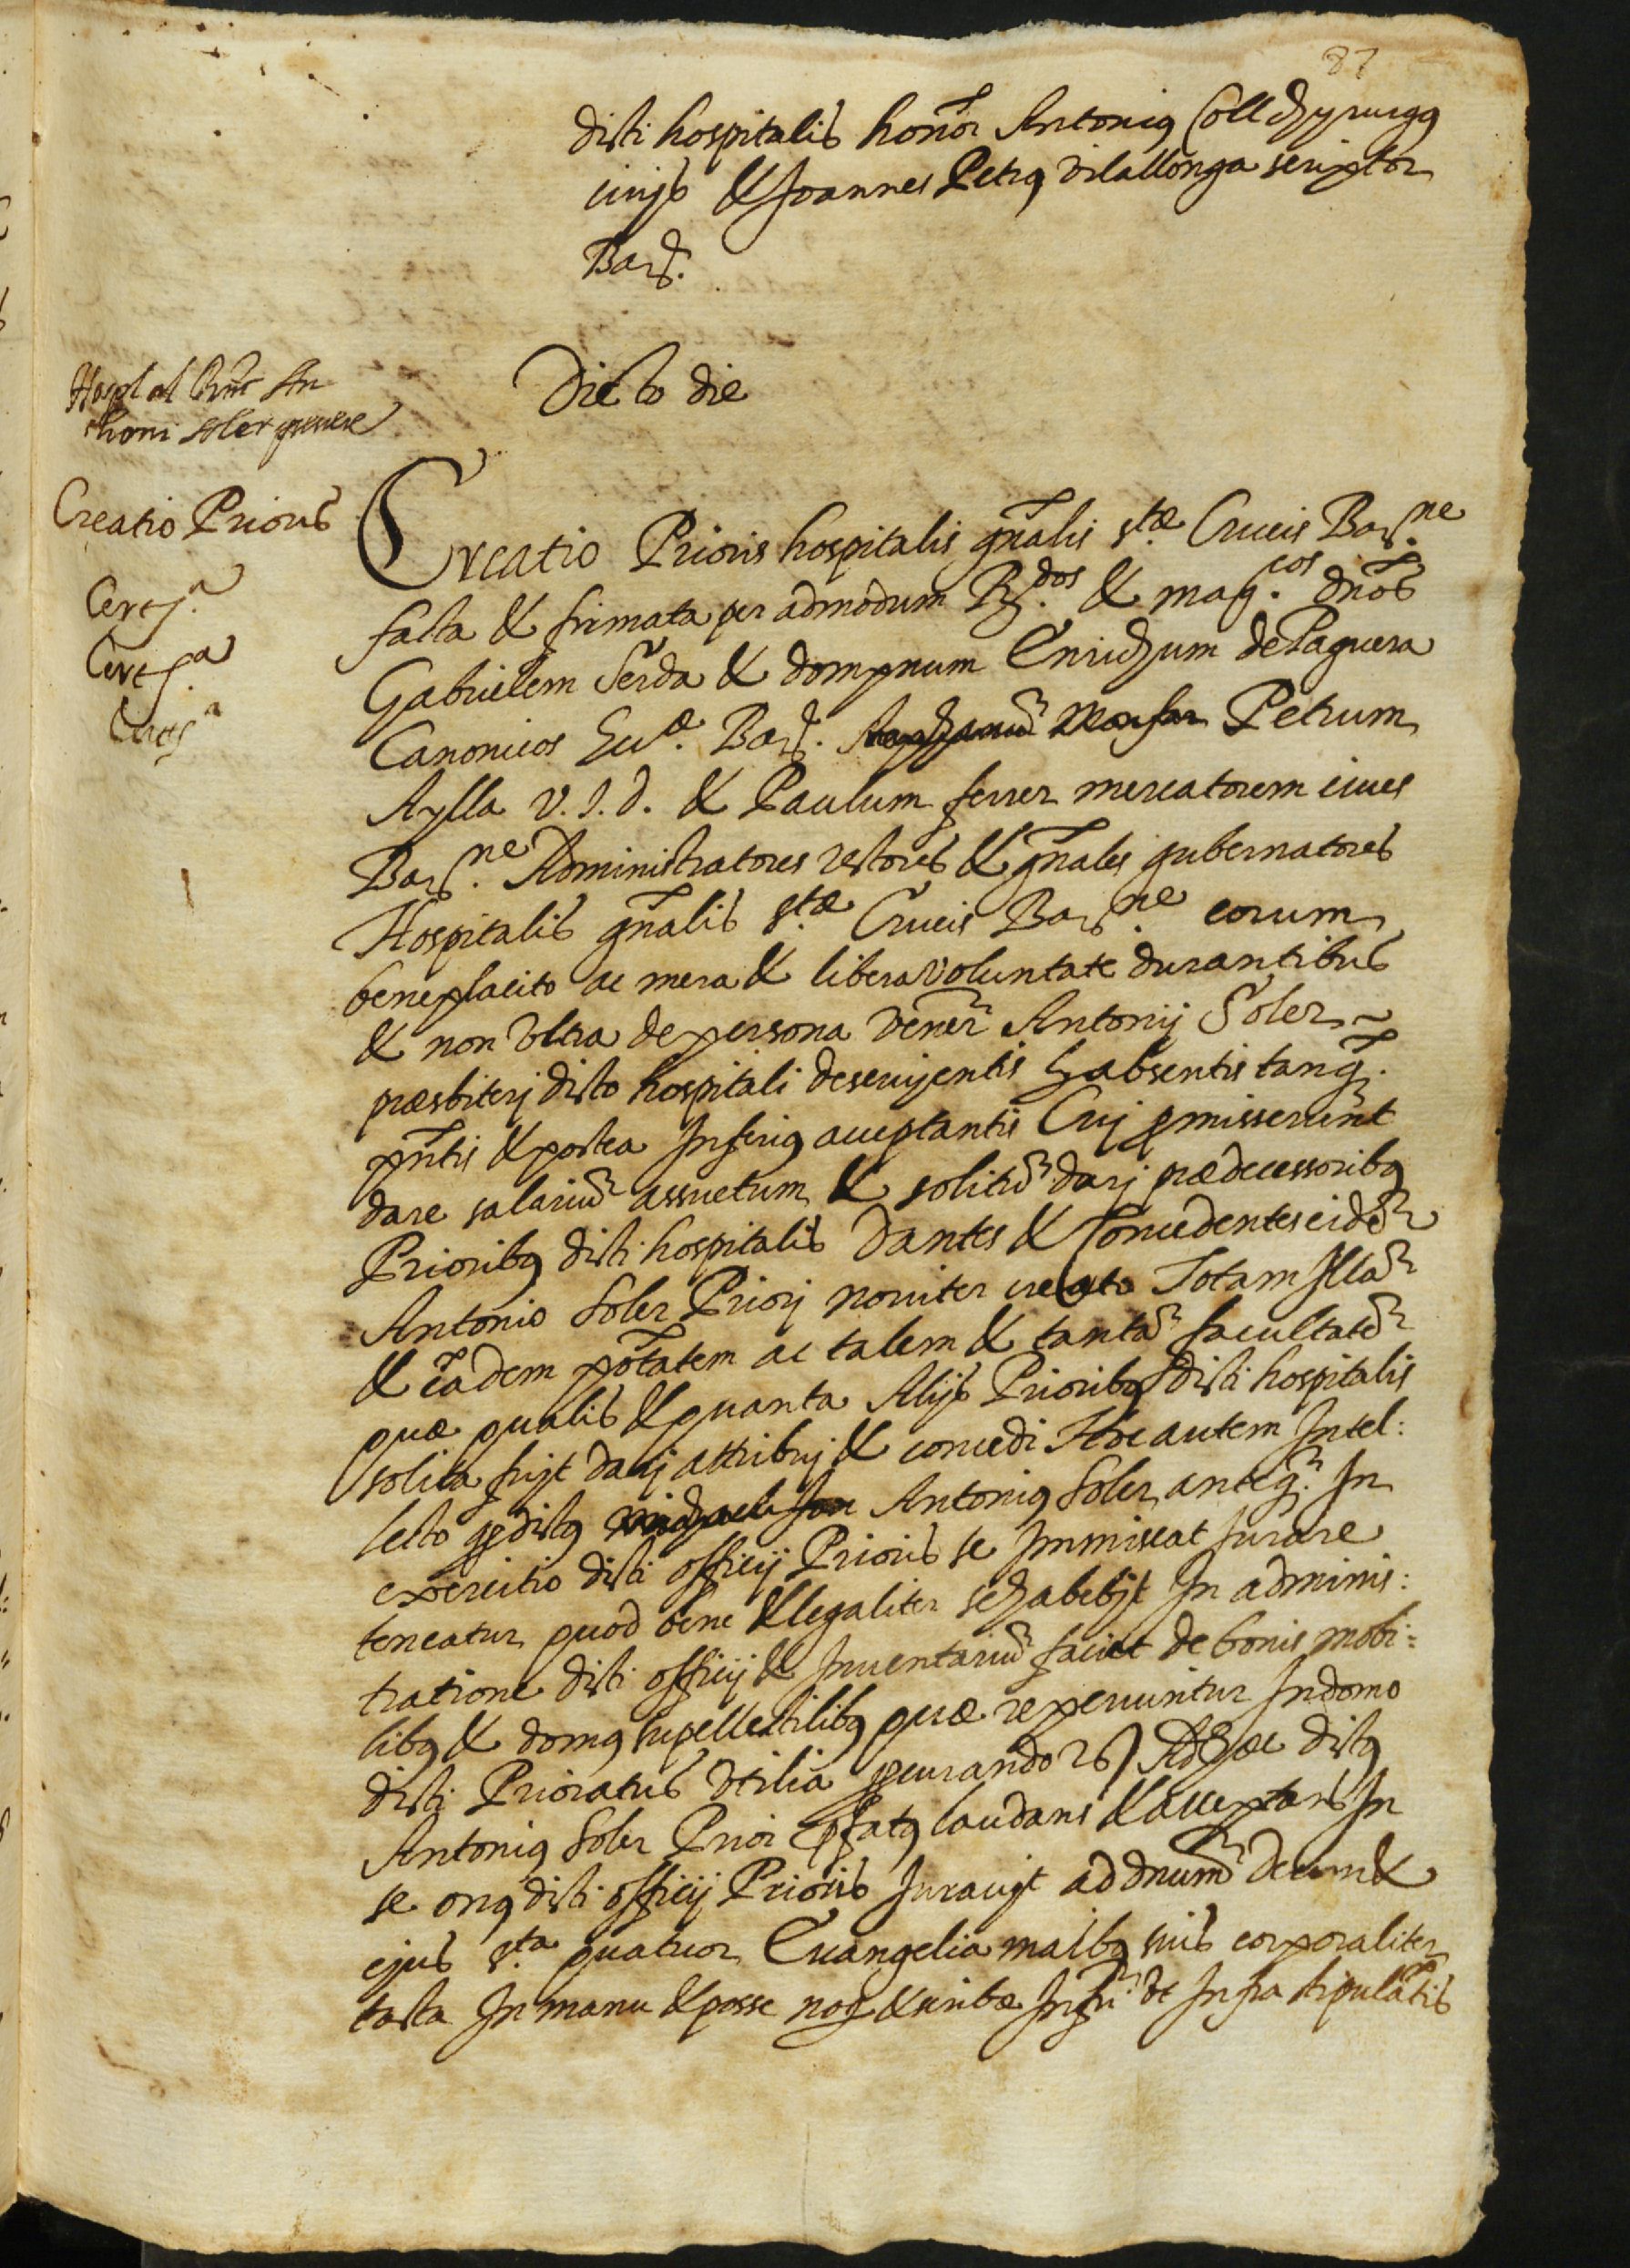 87
dicti hospitalis honor Antonius Coll chyrurgus
civis & Joannes Petrus Vilallonga scriptor
Barc.
Dicto die
Creatio Prioris
Creatio Prioris hospitalis gnalis stæ Crucis Barne
facta & firmata per admodum Rdos & magcos dnos
Gabrielem Serda & dompnum Enrichum de Paguera
Canonicos Barc. Petrum
Aylla V. J. d. & Paulum ferrer mercatorem cives
Barne Administratores rectores & gnales gubernatores
Hospitalis gnalis stæ Crucis Barne eorum
beneplacito ac mera & libera voluntate durantibus
& non ultra de persona vener Antonij Soler
præsbiterj dicto hospitali deservjentis absentis tanq.
pntis & postea Inferius acceptantis Cuj promisserunt
dare salariu assuetum & solitu darj prædecessoribus
Prioribus dicti hospitalis Dantes & Concedentes eide
Antonio Soler Priorj noviter creato Totam Illa
& eadem potatem ac talem & tanta facultate
quæ qualis & quanta Alijs Prioribus dicti hospitalis
solita fujt darj attribuj & concedi Hoc autem Intel:
lecto q dictus Antonius Soler anteq. In
exercitio dicti officij Prioris se Immisceat Jurare
teneatur quod bene & legaliter se habebjt In adminis:
tratione dicti officij & Inventariu faciet de bonis mobi:
libus & domus supellectilibus quæ reperiuntur In domo
dicti Prioratus Utilia procurando Ad hæc dictus
Antonius Soler Prior præfatus laudans & acceptans In
se onus dicti officij Prioris Juravjt ad dnum deum &
ejus sta quatuor Evangelia maibus suis corporaliter
tacta In manu & posse not & scribæ Infri et Infra stipulatis